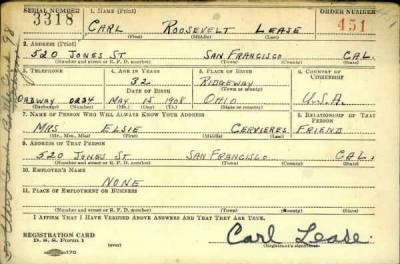 SERIAL NUMBER 1. NAME (Print) ORDER NUMBER
3318 CARL ROOSEVELT LEASE 451
(First) (Middle) (Last)
2. ADDRESS (Print)
520 JONES ST SAN FRANCISCO CAL.
(Number and street or R. F. D. number) (Town) (County) (State)
3. TELEPHONE 4. AGE IN YEARS 5. PLACE OF BIRTH 6. COUNTRY OF CITIZENSHIP
32 RIDGEWAY
DATE OF BIRTH (Town or county)
ORDWAY 0234 MAY 15 1908 OHIO U.S.A.
(Exchange) (Number) (Mo.) (Day) (Yr.) (State or country)
7. NAME OF PERSON WHO WILL ALWAYS KNOW YOUR ADDRESS 8. RELATIONSHIP OF THAT PERSON
MRS ELSIE CERVIERES FRIEND
(Mr., Mrs., Miss) (First) (Middle) (Last)
9. ADDRESS OF THAT PERSON
520 JONES ST SAN FRANCISCO CAL.
(Number and street or R. F. D. number) (Town) (County) (State)
10. EMPLOYER'S NAME
NONE
11. PLACE OF EMPLOYMENT OR BUSINESS
(Number and street or R. F. D. number) (Town) (County) (State)
I AFFIRM THAT I HAVE VERIFIED ABOVE ANSWERS AND THAT THEY ARE TRUE.
REGISTRATION CARD
D. S. S. Form 1 Carl Lease.
(over) (Registrant's signature)